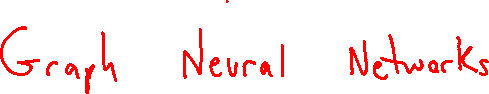 Graph Neural Networks